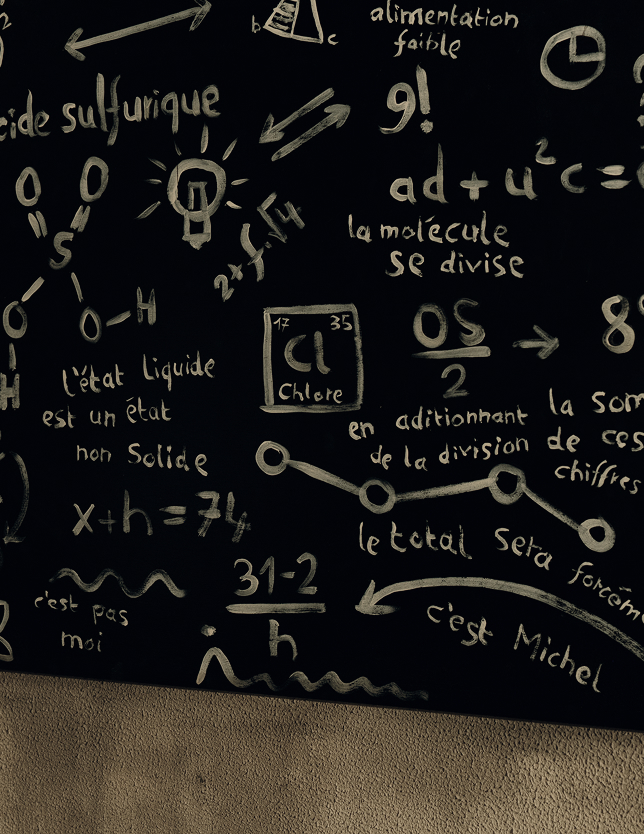 b
c
alimentation
faible
cide sulfurique
9!
ad + u²c =
O O
S
O O - H
H
2 x f. √4
la molécule
se divise
17 35
Cl
Chlore
OS
2
8
l'état liquide
est un état
non Solide
en aditionnant
de la division
la som
de ces
chiffres
x + h = 74
le total sera forcém
31-2
h
c'est pas
moi
c'est Michel